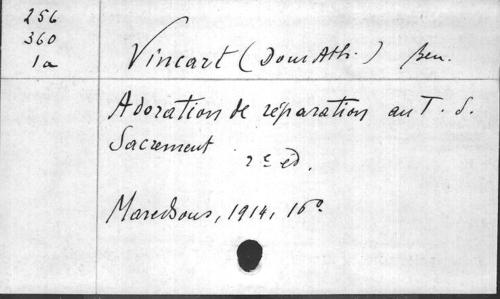 256
360
1a
Vincart (Dom Ath.) Ben.
Adoration de réparation au T. S.
Sacrement 2e éd.
Maredsous, 1914, 16º